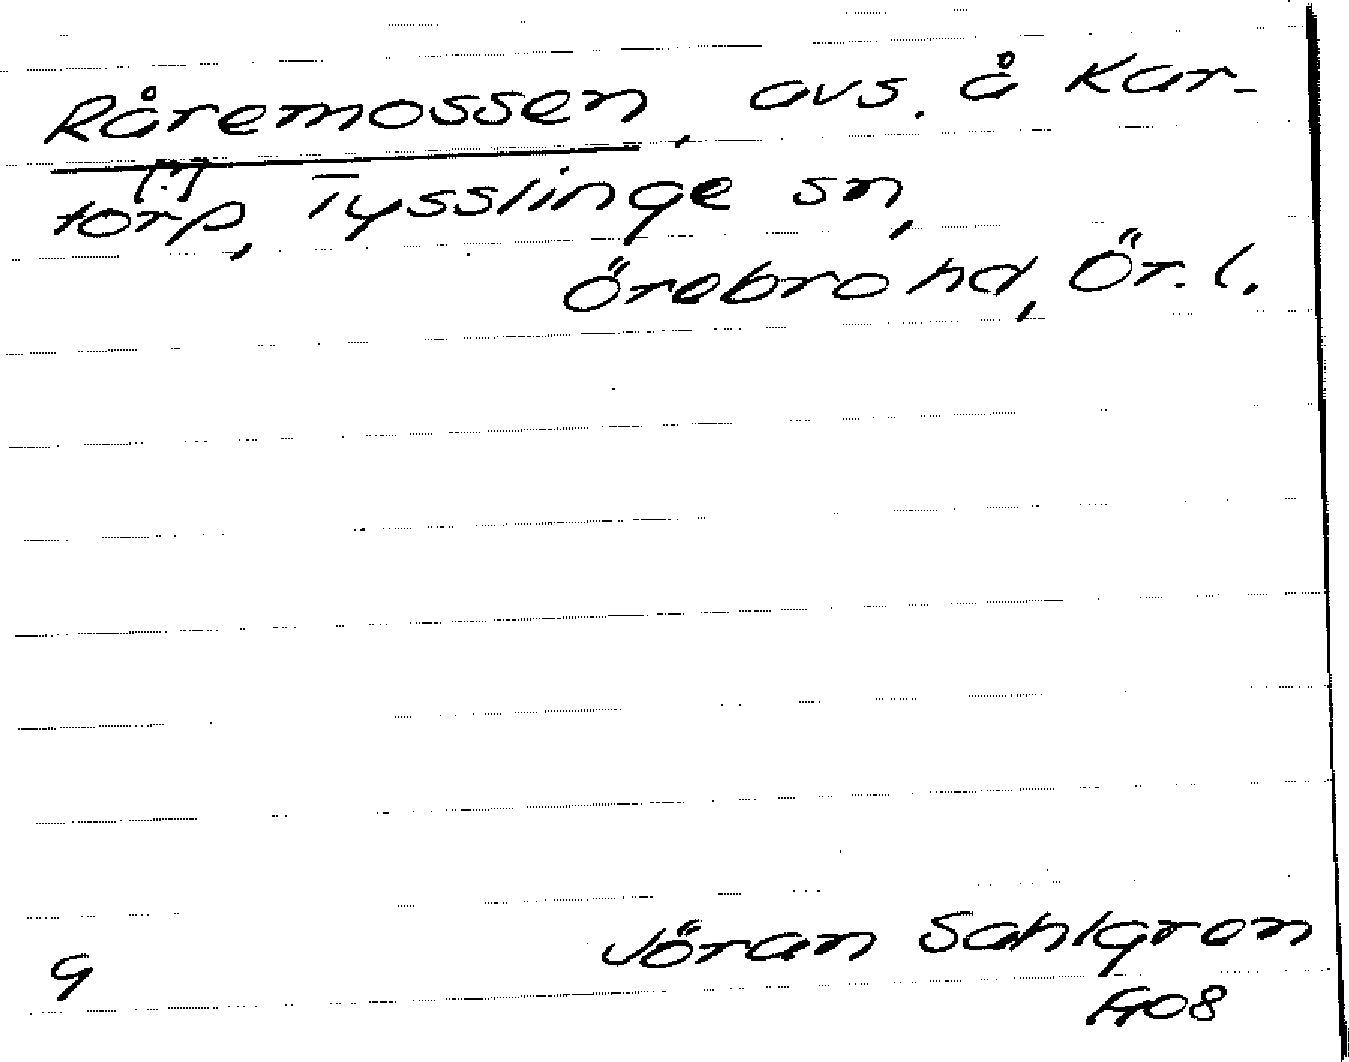 Råremossen, avs. å Kar-
[?]
torp, Tysslinge sn,
Örebro hd, Ör. l.
G Jöran Sahlgren
1908